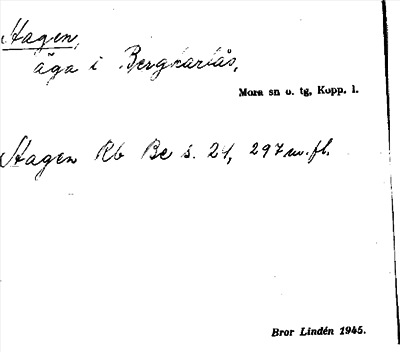 Hagen,
äga i Bergkarlås,
Mora sn o. tg, Kopp. l.
Hagen Rb Be s. 21, 297 m.fl.
Bror Lindén 1945.